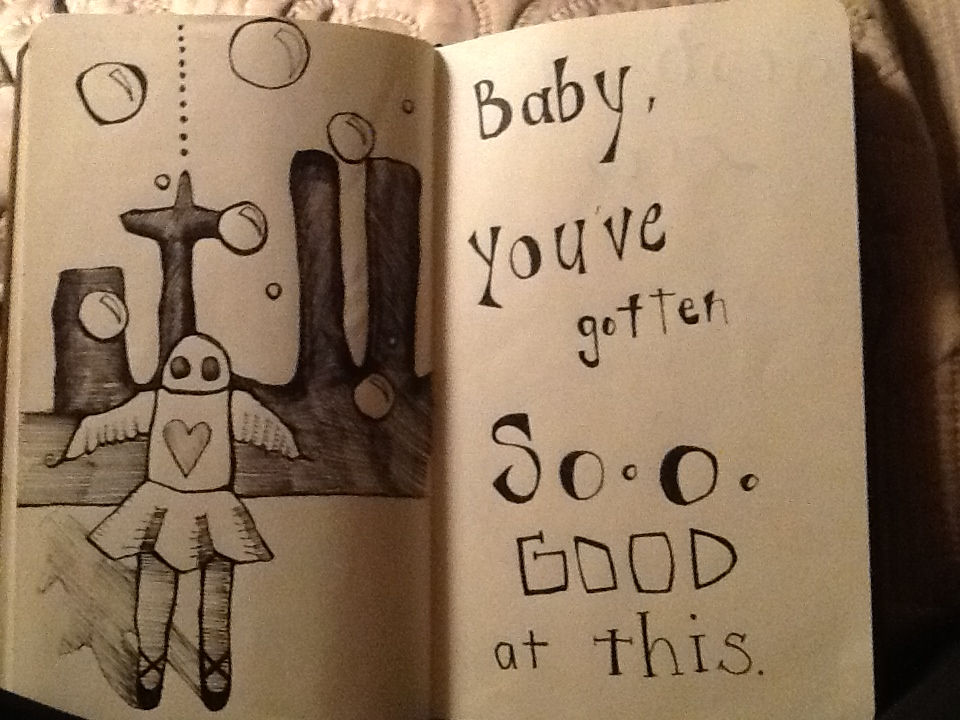 Baby,
you've
gotten
So.o.
GOOD
at this.